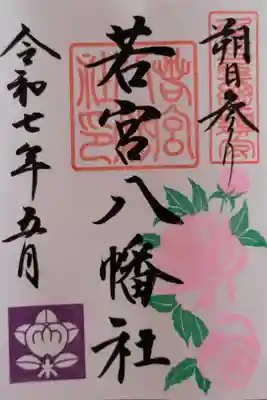 朔日参り
若宮八幡社
令和七年五月
若宮社印